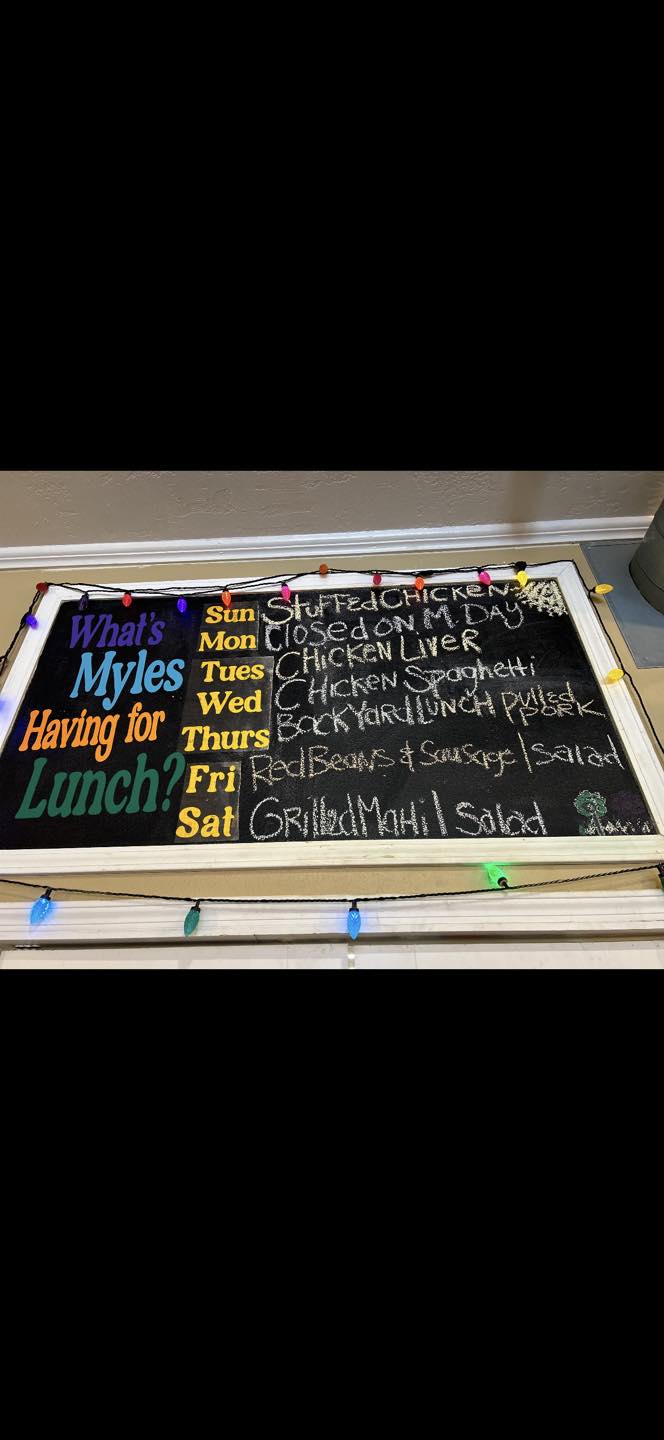 What's
Myles
Having for
Lunch?
Sun Stuffed CHICKEN
Mon Closed ON M. DAY
Tues CHICKEN LIVER
Wed CHICKEN Spaghetti
Thurs BACKYARd LUNCH pulled
pork
Fri Red Beans & Sausage | Salad
Sat GRilled MaHi | Salad